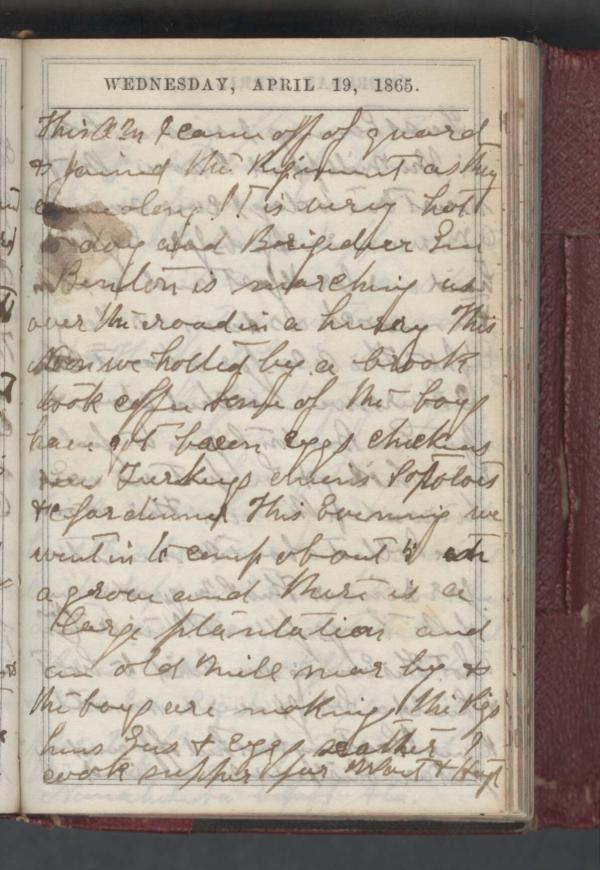 WEDNESDAY, APRIL 19, 1865.
This A M I came off of guard
& joined the Regiment as they
came along It is very hot
to day and Brigedier Gen
Benton is marching us
over the road in a hurry This
Noon we holted by a brook
took coffee some of the boys
have got bacon eggs chickens
Turkeys Potatoes
&c for dinner This Evening we
went in to camp about 5 at
a grove and there is a
large plantation and
an old mill near by &
the boys are making the Pigs
hens & eggs I
cook supper for &